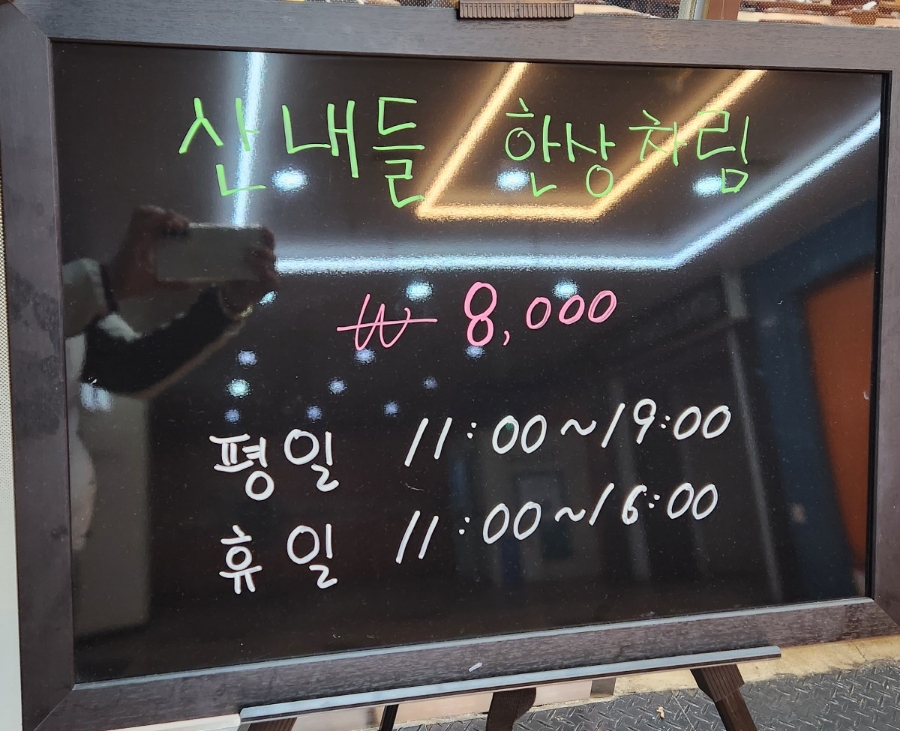 산내들 한상차림
₩ 8,000
평일 11:00~19:00
휴일 11:00~16:00